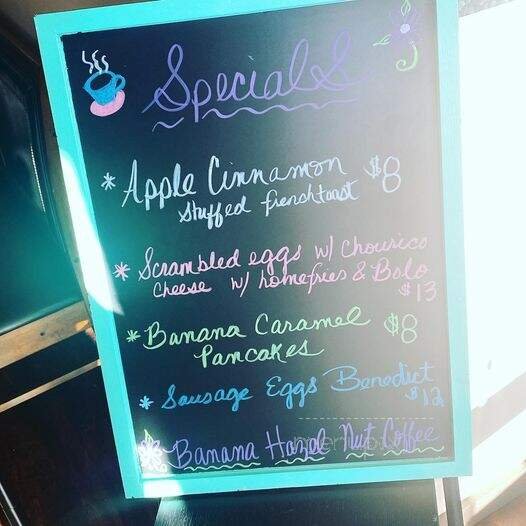 Specials
* Apple Cinnamon $8
Stuffed frenchtoast
* Scrambled eggs w/ Chourico
Cheese w/ homefries & Bolo
$13
* Banana Caramel $8
Pancakes
* Sausage Eggs Benedict
$12
Banana Hazel Nut Coffee